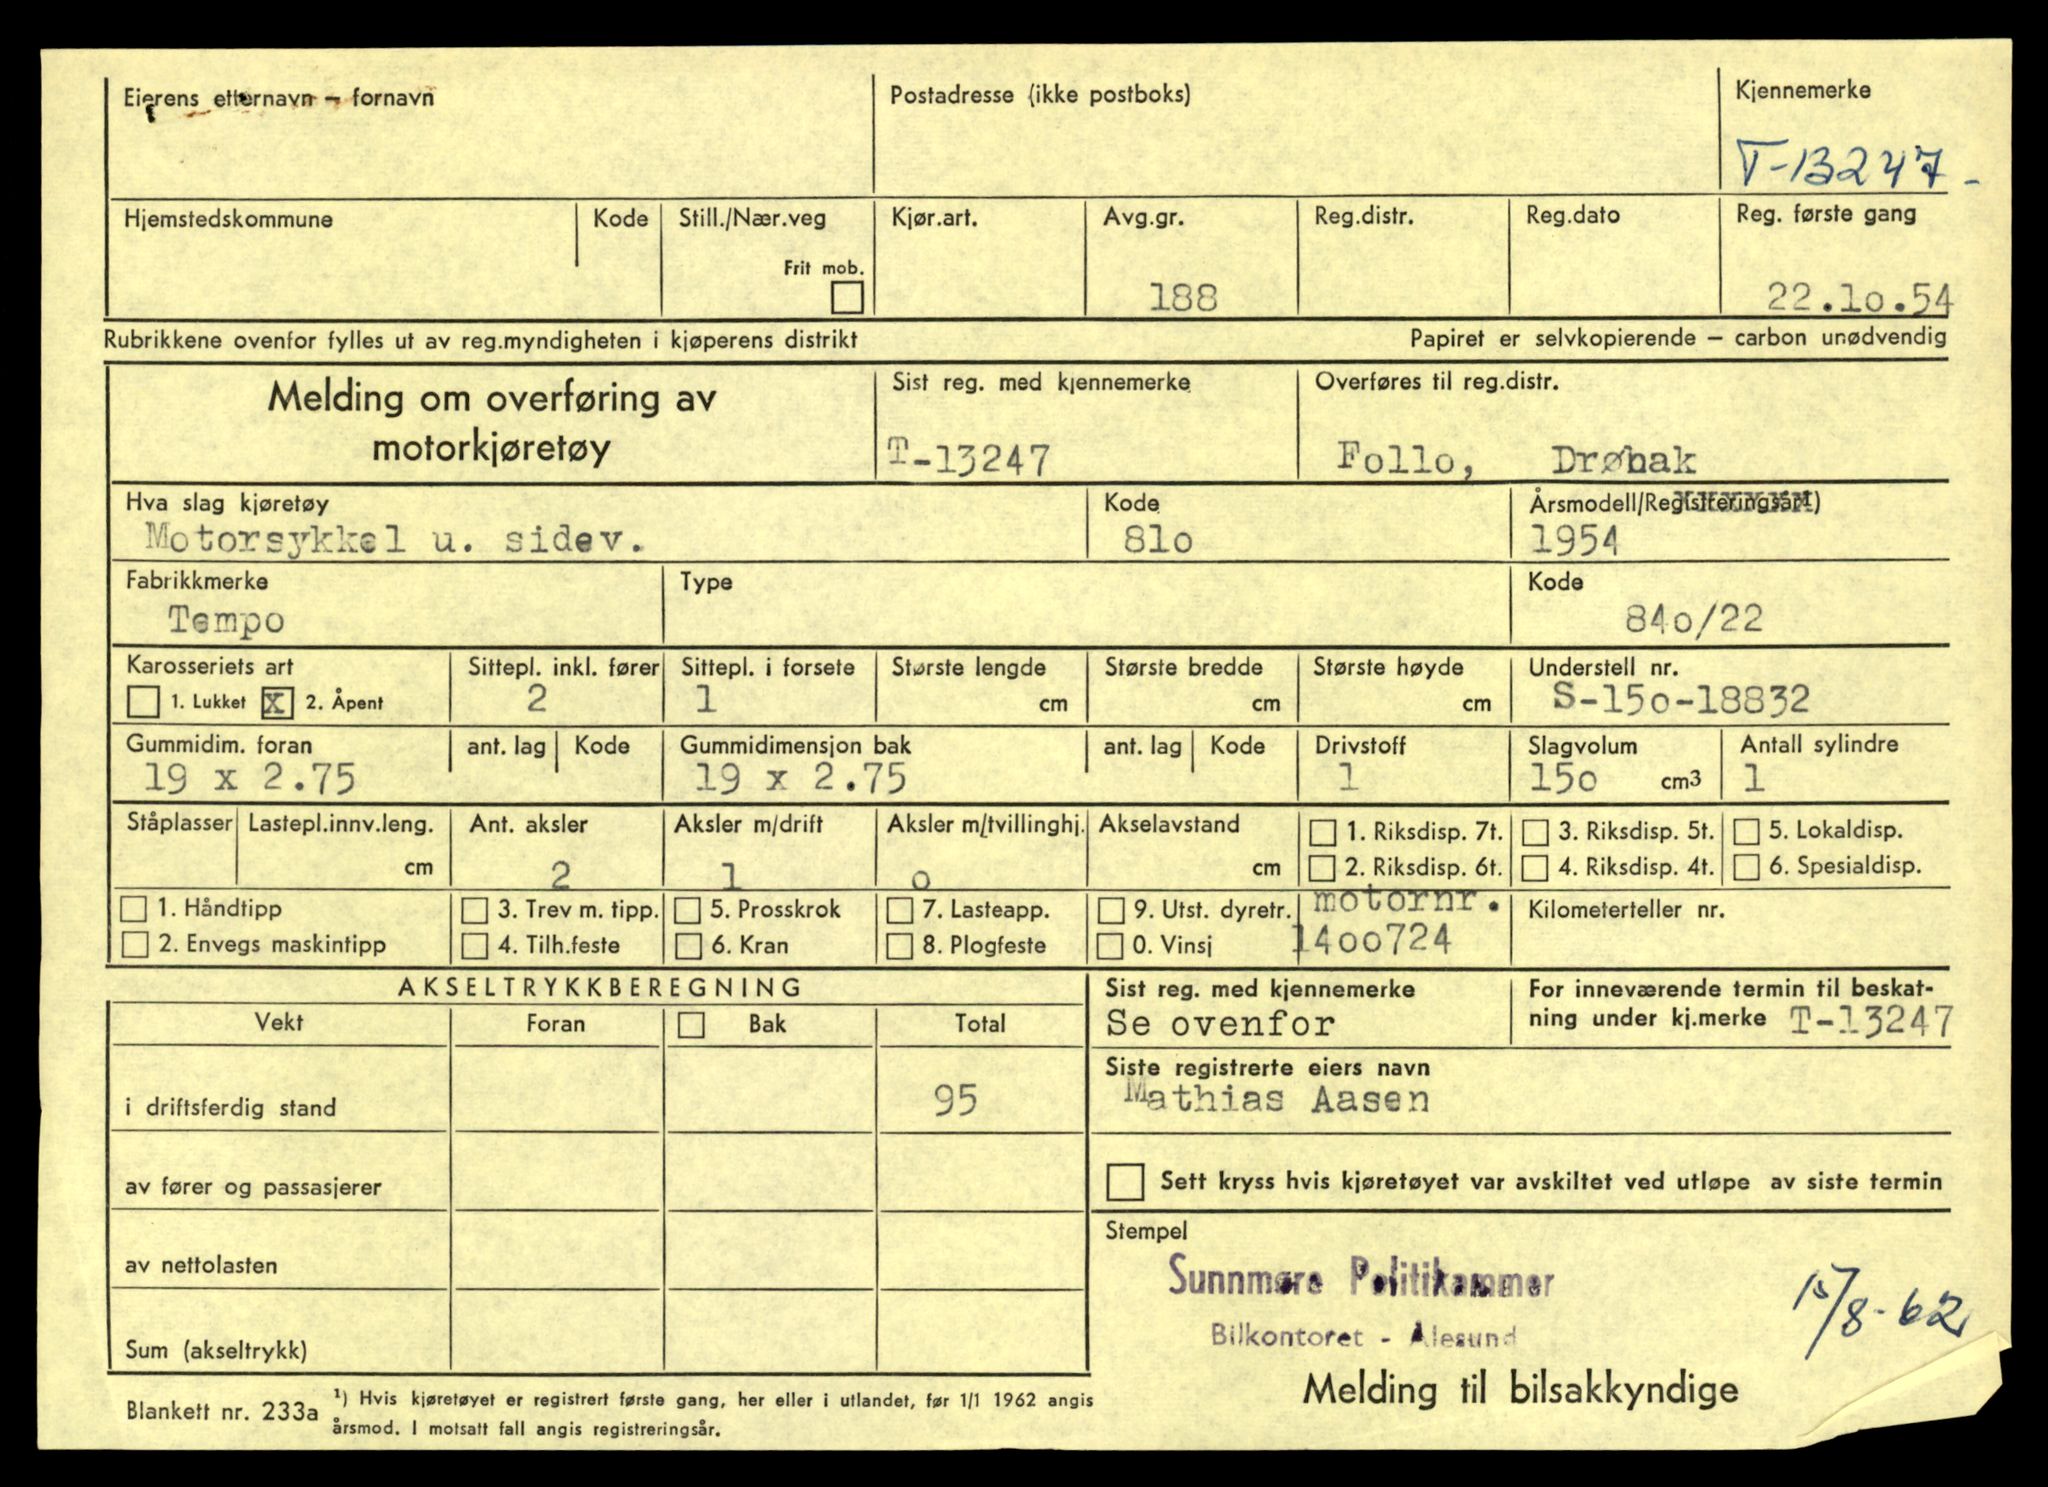 Eierens etternavn – fornavn
Postadresse (ikke postboks)
Kjennemerke
T-13247-
Hjemstedskommune
Kode
Still./Nær.veg
Frit mob.
Kjør.art.
Avg.gr.
188
Reg.distr.
Reg.dato
Reg. første gang
22.10.54
Rubrikkene ovenfor fylles ut av reg.myndigheten i kjøperens distrikt
Papiret er selvkopierende – carbon unødvendig
Melding om overføring av
motorkjøretøy
Sist reg. med kjennemerke
T-13247
Overføres til reg.distr.
Follo, Drøbak
Hva slag kjøretøy
Motorsykkel u. sidev.
Kode
810
Årsmodell/Registreringsår1)
1954
Fabrikkmerke
Tempo
Type
Kode
840/22
Karosseriets art
1. Lukket X 2. Åpent
Sittepl. inkl. fører
2
Sittepl. i forsete
1
Største lengde
cm
Største bredde
cm
Største høyde
cm
Understell nr.
S-150-18832
Gummidim. foran
19 x 2.75
ant. lag
Kode
Gummidimensjon bak
19 x 2.75
ant. lag
Kode
Drivstoff
1
Slagvolum
150 cm3
Antall sylindre
1
Ståplasser
Lastepl.innv.leng.
cm
Ant. aksler
2
Aksler m/drift
1
Aksler m/tvillinghj.
0
Akselavstand
cm
1. Riksdisp. 7t.
2. Riksdisp. 6t.
3. Riksdisp. 5t.
4. Riksdisp. 4t.
5. Lokaldisp.
6. Spesialdisp.
1. Håndtipp
2. Envegs maskintipp
3. Trev m. tipp.
4. Tilh.feste
5. Prosskrok
6. Kran
7. Lasteapp.
8. Plogfeste
9. Utst. dyretr.
0. Vinsj
motornr.
1400724
Kilometerteller nr.
AKSELTRYKKBEREGNING
Vekt
Foran
Bak
Total
i driftsferdig stand
95
av fører og passasjerer
av nettolasten
Sum (akseltrykk)
Sist reg. med kjennemerke
Se ovenfor
For inneværende termin til beskat-
ning under kj.merke T-13247
Siste registrerte eiers navn
Mathias Aasen
Sett kryss hvis kjøretøyet var avskiltet ved utløpe av siste termin
Stempel
Sunnmøre Politikammer
Bilkontoret - Ålesund
15/8-62
Melding til bilsakkyndige
Blankett nr. 233a
1) Hvis kjøretøyet er registrert første gang, her eller i utlandet, før 1/1 1962 angis
årsmod. I motsatt fall angis registreringsår.